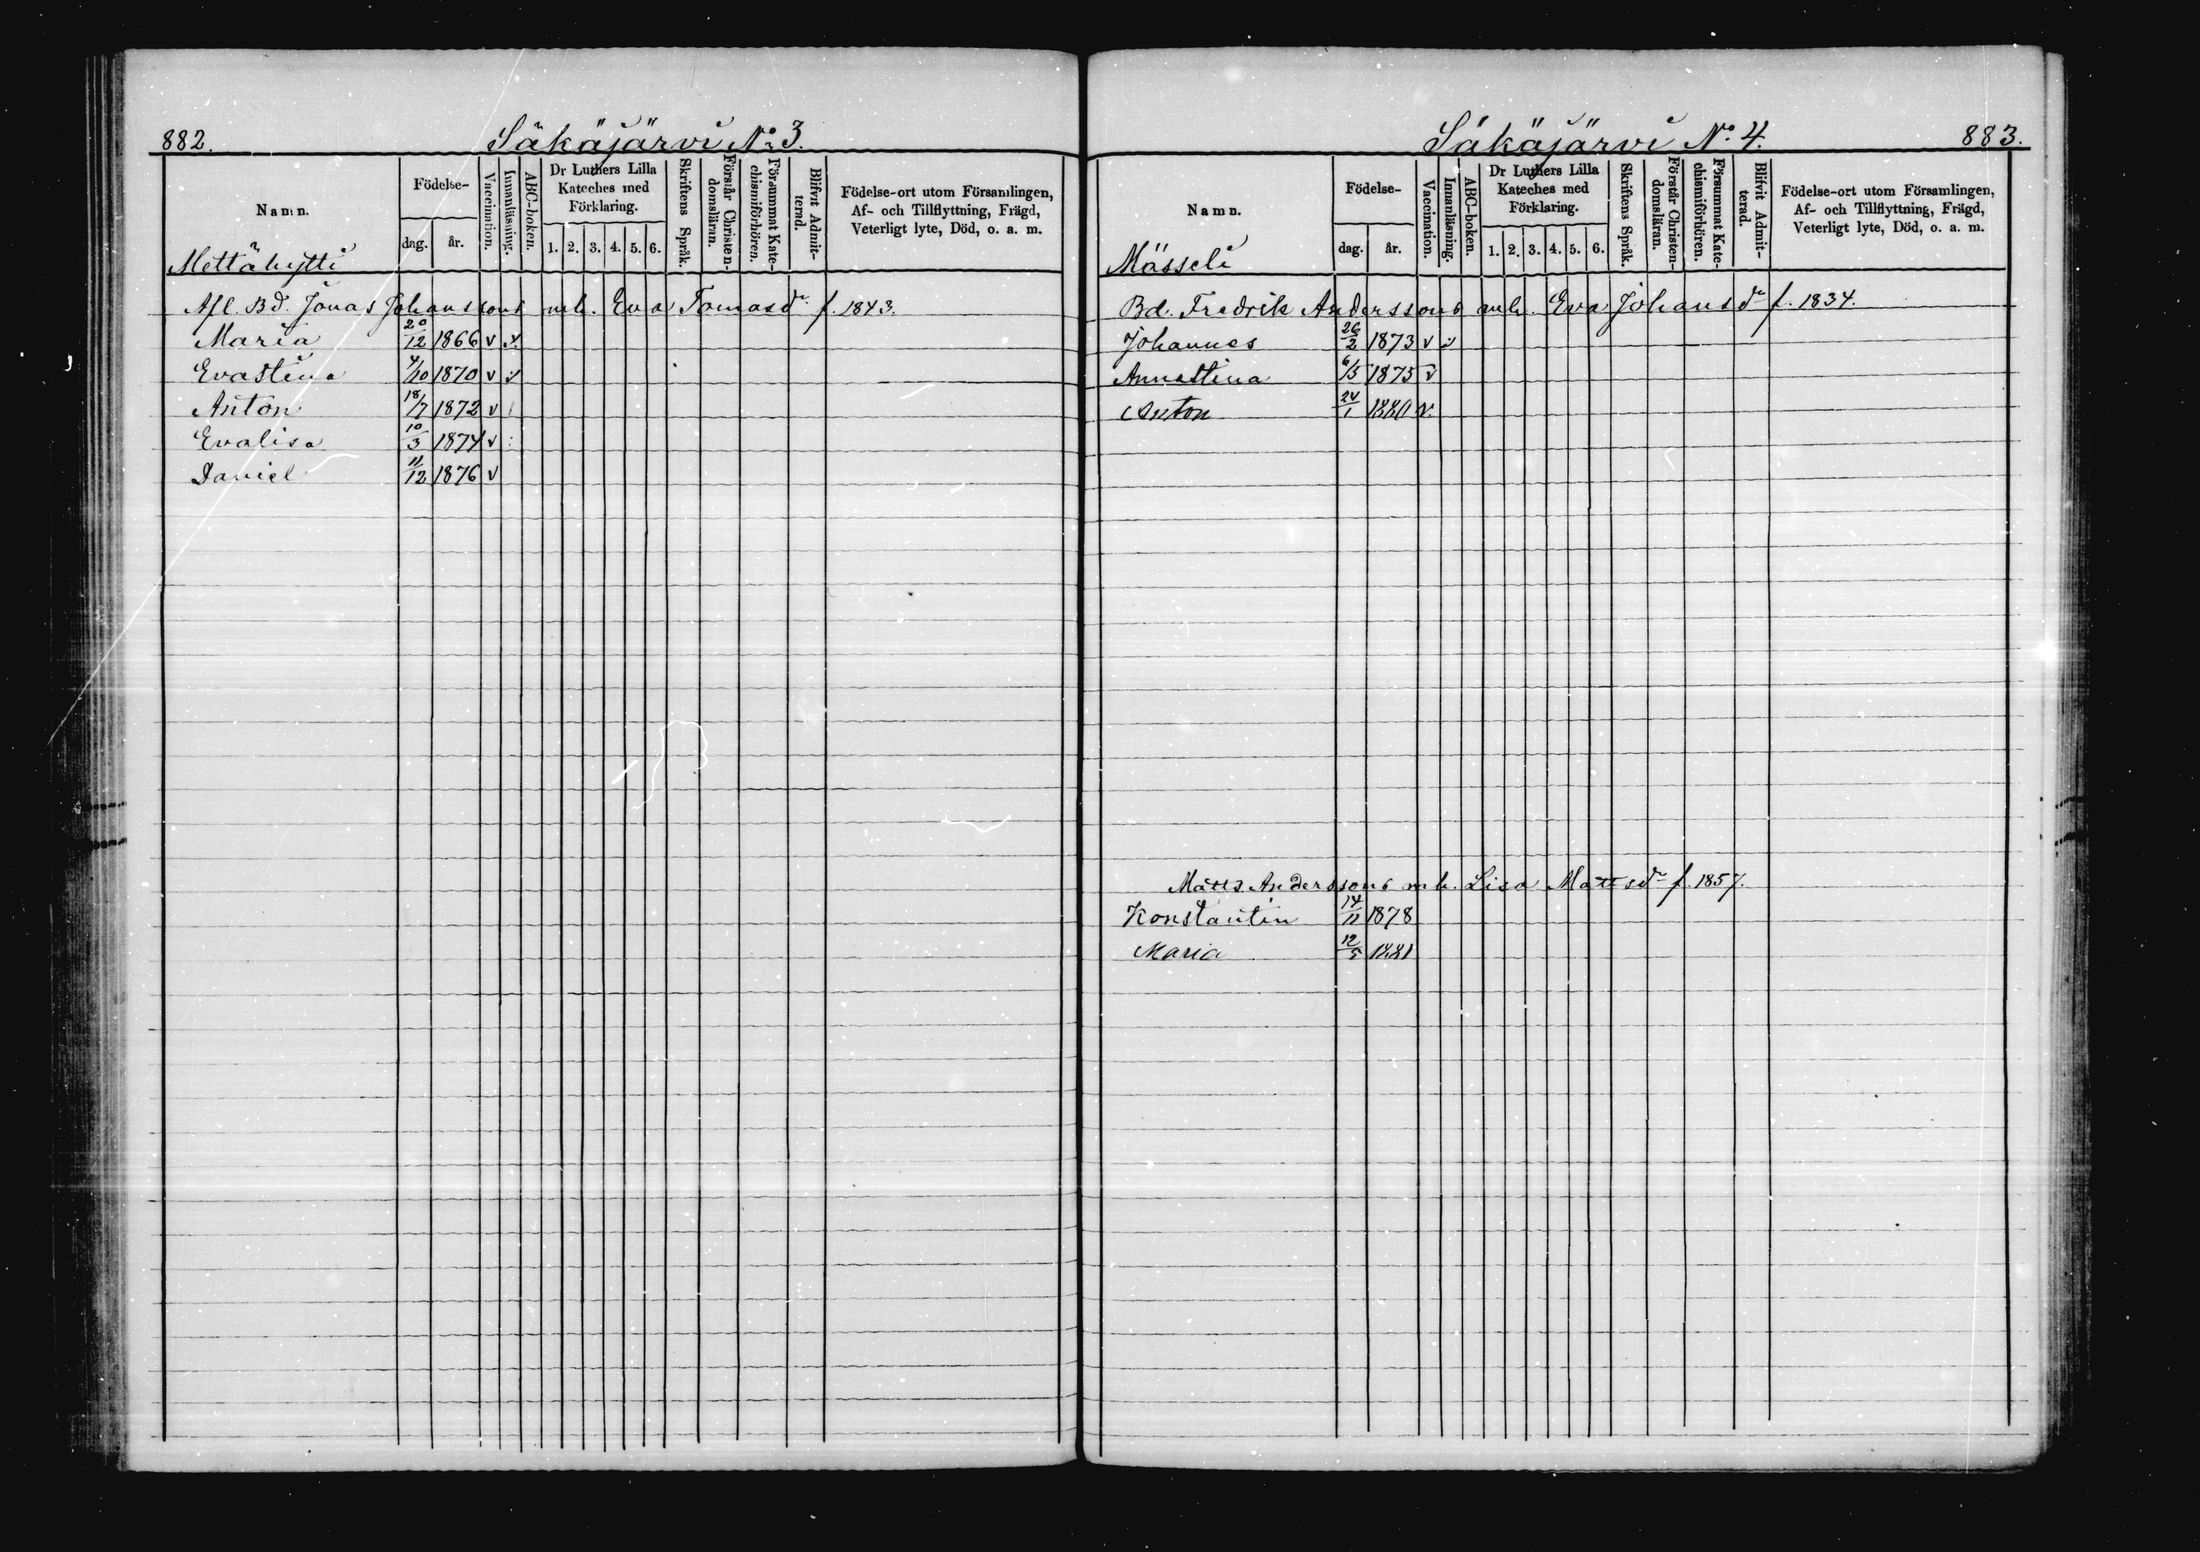 882. Säkäjärvi No 3.
Namn. Födelse- dag. år. Vaccination. Innanläsning. ABC-boken. Dr Luthers Lilla Kateches med Förklaring. 1. 2. 3. 4. 5. 6. Skriftens Språk. Förstår Christendomsläran. Försummat Katechismiförhören. Blifvit Admitterad. Födelse-ort utom Församlingen, Af- och Tillflyttning, Frägd, Veterligt lyte, Död, o. a. m.
Mettähytti
Afl. Bd. Jonas Johanssons mh. Eva Tomasdr f. 1843.
Maria 20/12 1866 v v
Evastina 4/10 1870 v v
Anton 18/7 1872 v
Evalisa 10/3 1874 v
Daniel 11/12 1876 v
Säkäjärvi No 4. 883.
Namn. Födelse- dag. år. Vaccination. Innanläsning. ABC-boken. Dr Luthers Lilla Kateches med Förklaring. 1. 2. 3. 4. 5. 6. Skriftens Språk. Förstår Christendomsläran. Försummat Katechismiförhören. Blifvit Admitterad. Födelse-ort utom Församlingen, Af- och Tillflyttning, Frägd, Veterligt lyte, Död, o. a. m.
Mässeli
Bd. Fredrik Anderssons mh. Eva Johansdr f. 1834.
Johannes 26/2 1873 v v
Annastina 6/5 1875 v
Anton 24/1 1880 v.
Matts Anderssons mh. Lisa Mattsdr f. 1857.
Konstantin 14/11 1878
Maria 12/5 1881